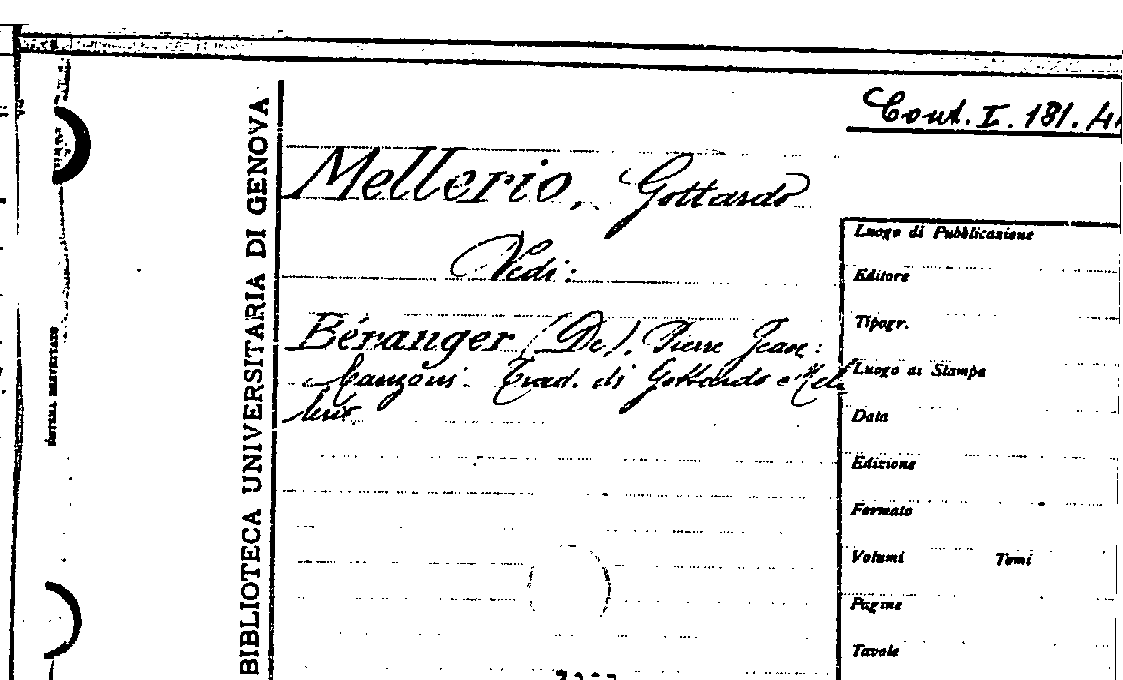 Cont. I. 181.
Mellerio, Gottardo
Vedi:
Béranger (De). Pierre Jean:
Canzoni. Trad. di Gottardo Mel
lerio.
BIBLIOTECA UNIVERSITARIA DI GENOVA
SISTEMA BREVETTATO
Luogo di Pubblicazione
Editore
Tipogr.
Luogo di Stampa
Data
Edizione
Formato
Volumi Tomi
Pagine
Tavole